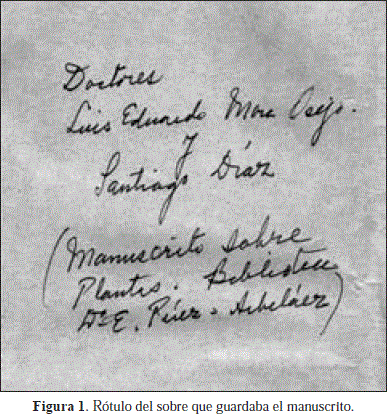 Doctores
Luis Eduardo Mora Osejo.
y
Santiago Díaz
(Manuscrito sobre
Plantas. Biblioteca
Dr E. Pérez-Arbeláez)
Figura 1. Rótulo del sobre que guardaba el manuscrito.